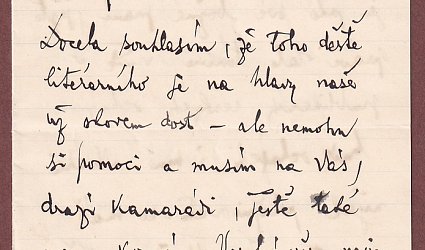 Docela souhlasím, že toho deště
literárního je na hlavy naše
už slovem dost – ale nemohu
si pomoci a musím na Vás,
drazí kamarádi, ještě také